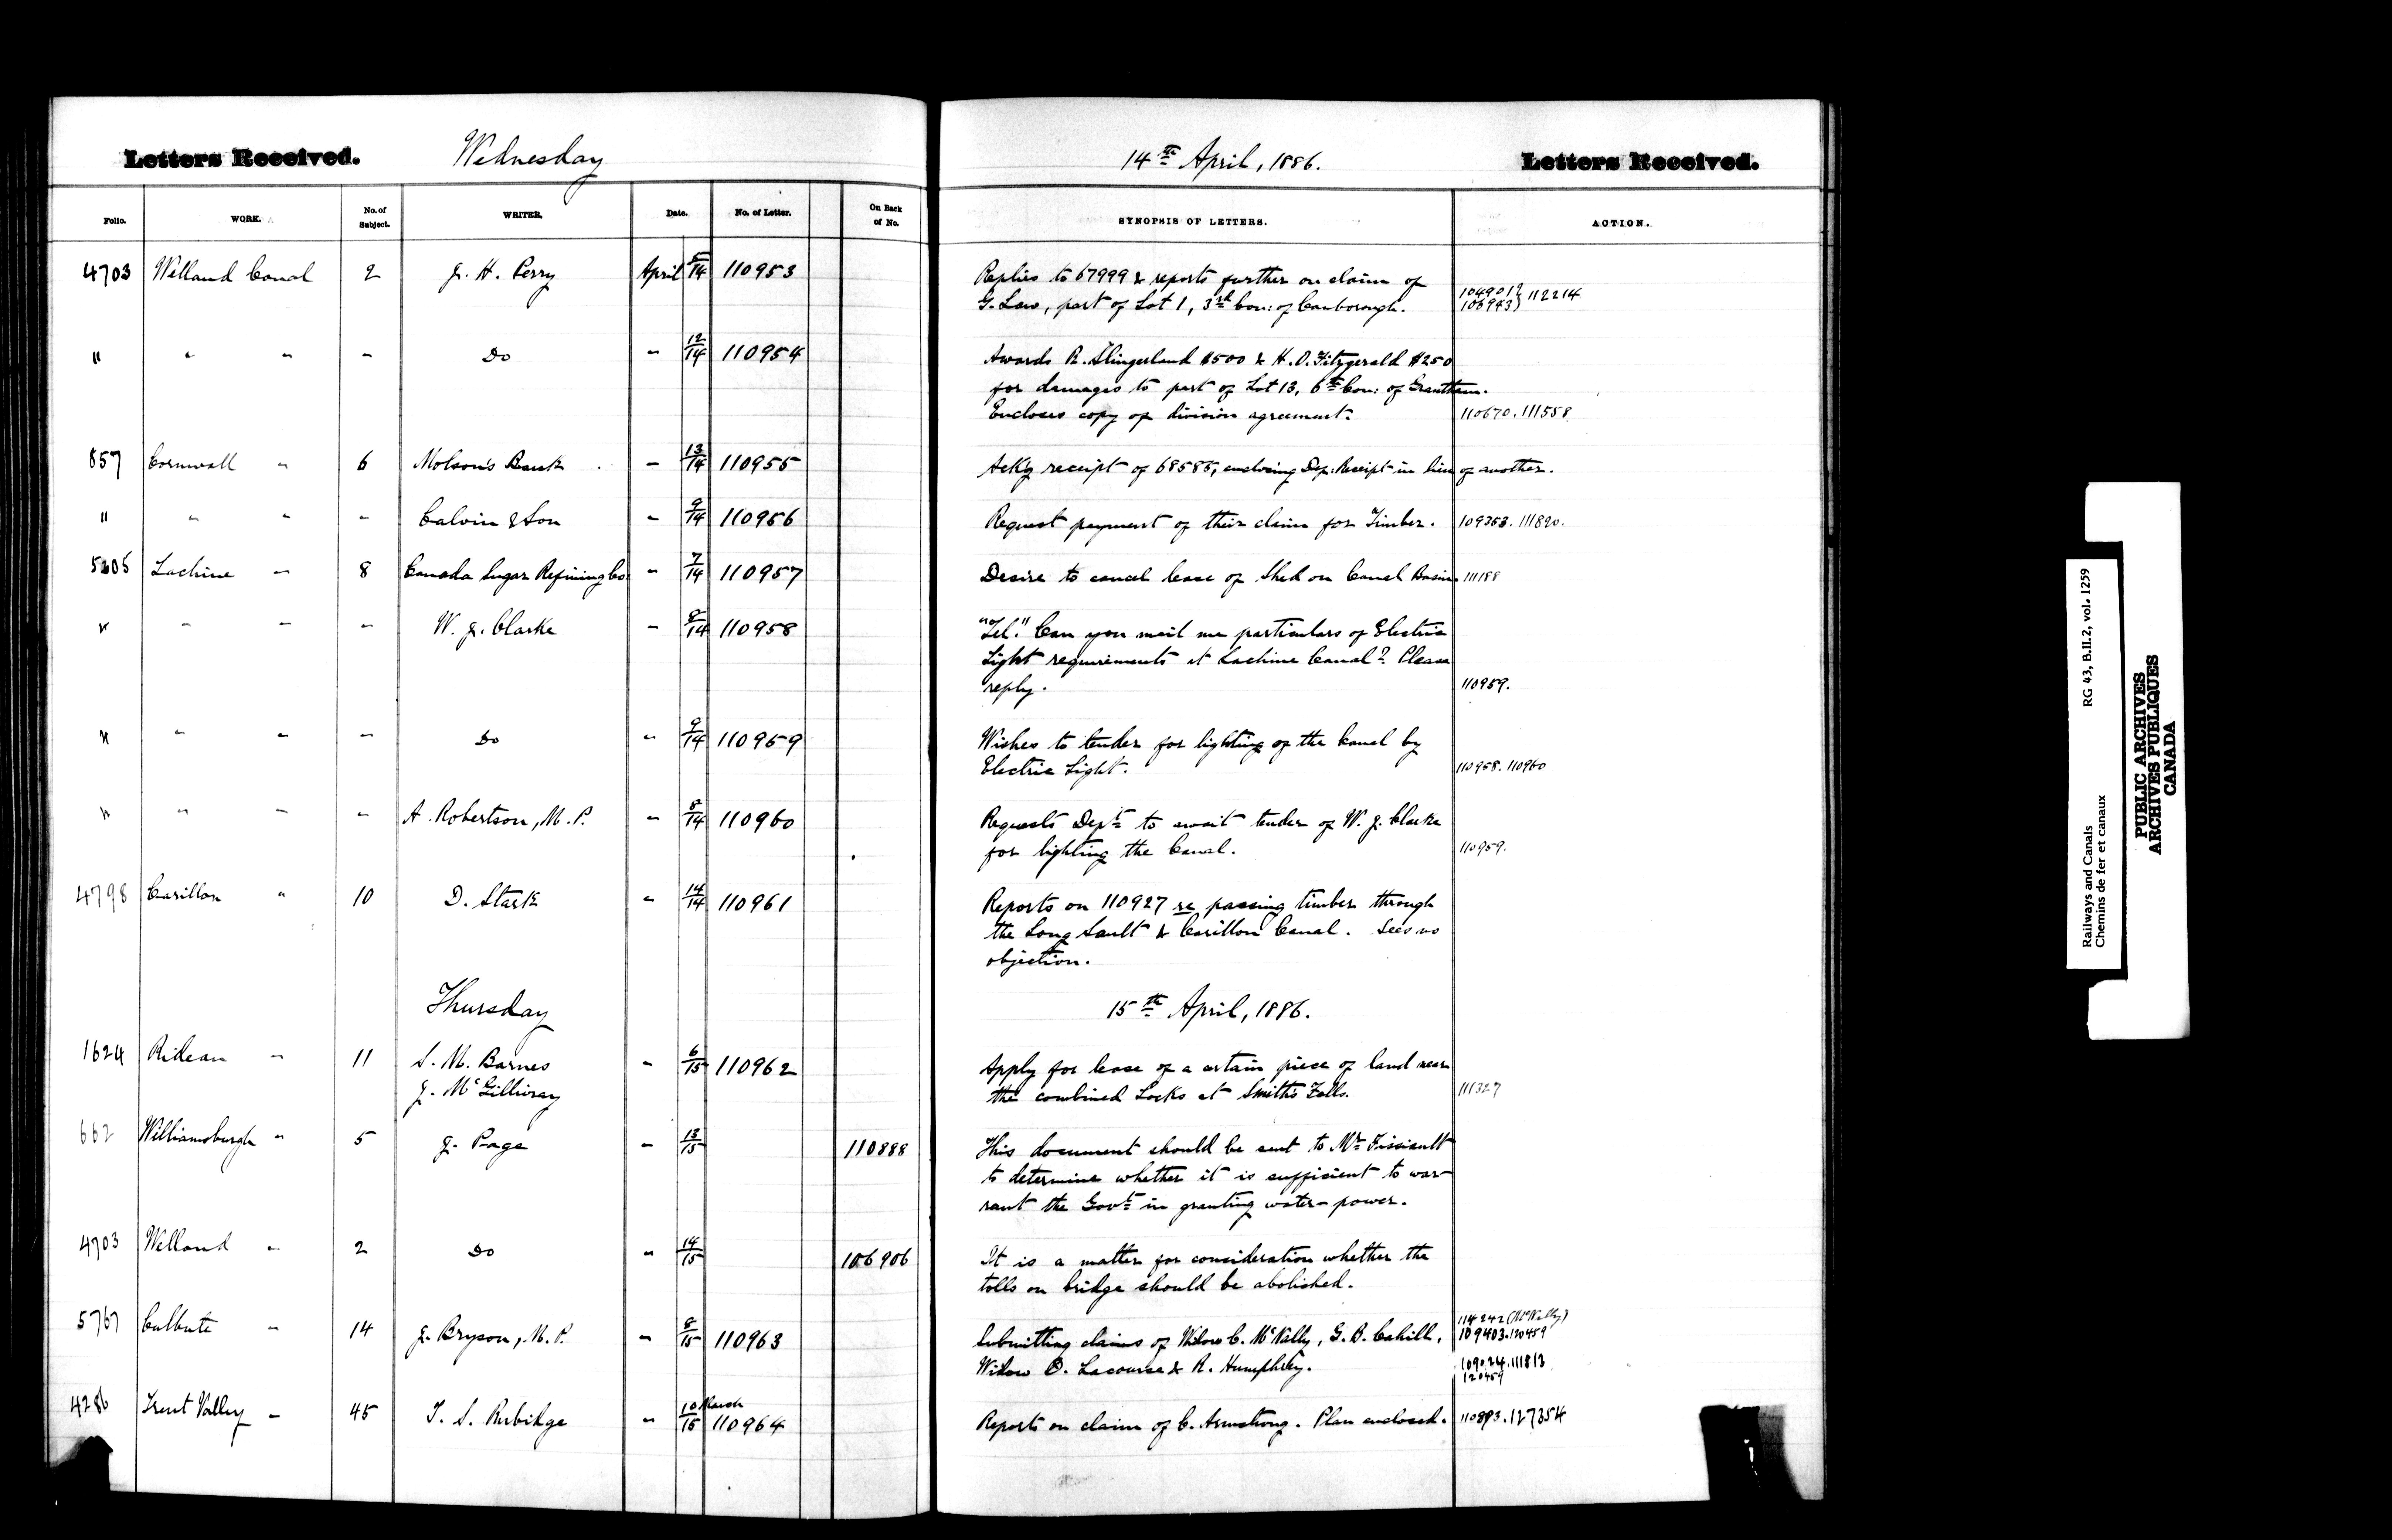 Letters Received. Wednesday 14th April, 1886. Letters Received.
Folio. WORK. No. of Subject. WRITER. Date. No. of Letter. On Back of No. SYNOPSIS OF LETTERS. ACTION.
4703 Welland Canal 2 J. H. Perry April 5/14 110953 Replies to 67999 & reports further on claim of
G. Law, part of Lot 1, 3rd Con: of Canborough. 104901 106943 } 112214
" " " " Do " 12/14 110954 Awards R. Slingerland $500 & H. O. Fitzgerald $250
for damages to part of Lot 13, 6th Con: of Grantham.
Encloses copy of division agreement. 110670. 111558.
857 Cornwall " 6 Molson's Bank " 13/14 110955 Ackg receipt of 68585, enclosing Dep: Receipt in lieu of another.
" " " " Calvin & Son " 9/14 110956 Request payment of their claim for Timber. 109353. 111820.
5205 Lachine " 8 Canada Sugar Refining Co. " 7/14 110957 Desire to cancel lease of Shed on Canal Basin 111188
" " " " W. J. Clarke " 8/14 110958 "Tel." Can you mail me particulars of Electric
Light requirements at Lachine Canal? Please
reply. 110959.
" " " " Do " 9/14 110959 Wishes to tender for lighting of the Canal by
Electric Light. 110958. 110960
" " " " A. Robertson, M.P. " 8/14 110960 Requests Dept to await tender of W. J. Clarke
for lighting the Canal. 110959.
4798 Carillon " 10 D. Stark " 14/14 110961 Reports on 110927 re passing timber through
the Long Sault & Carillon Canal. Sees no
objection.
Thursday 15th April, 1886.
1624 Rideau " 11 S. M. Barnes " 6/15 110962 Apply for lease of a certain piece of land near
J. McGillivray the combined Locks at Smith's Falls. 111327
662 Williamsburgh " 5 J. Page " 13/15 110888 This document should be sent to Mr Fissiault
to determine whether it is sufficient to war-
rant the Govt in granting water-power.
4703 Welland " 2 Do " 14/15 106906 It is a matter for consideration whether the
tolls on bridge should be abolished.
5767 Culbute " 14 J. Bryson, M.P. " 8/15 110963 Submitting claims of Widow C. McNally, G. B. Cahill, 114242 (McNally) 109403. 120459
Widow O. Lacourse & R. Humphrey. 109024. 111813 120459
4286 Trent Valley " 45 T. S. Rubidge " 10 March/15 110964 Reports on claim of C. Armstrong. Plan enclosed. 110893. 127354
RG 43, B.II.2, vol. 1259
Railways and Canals
Chemins de fer et canaux
PUBLIC ARCHIVES
ARCHIVES PUBLIQUES
CANADA